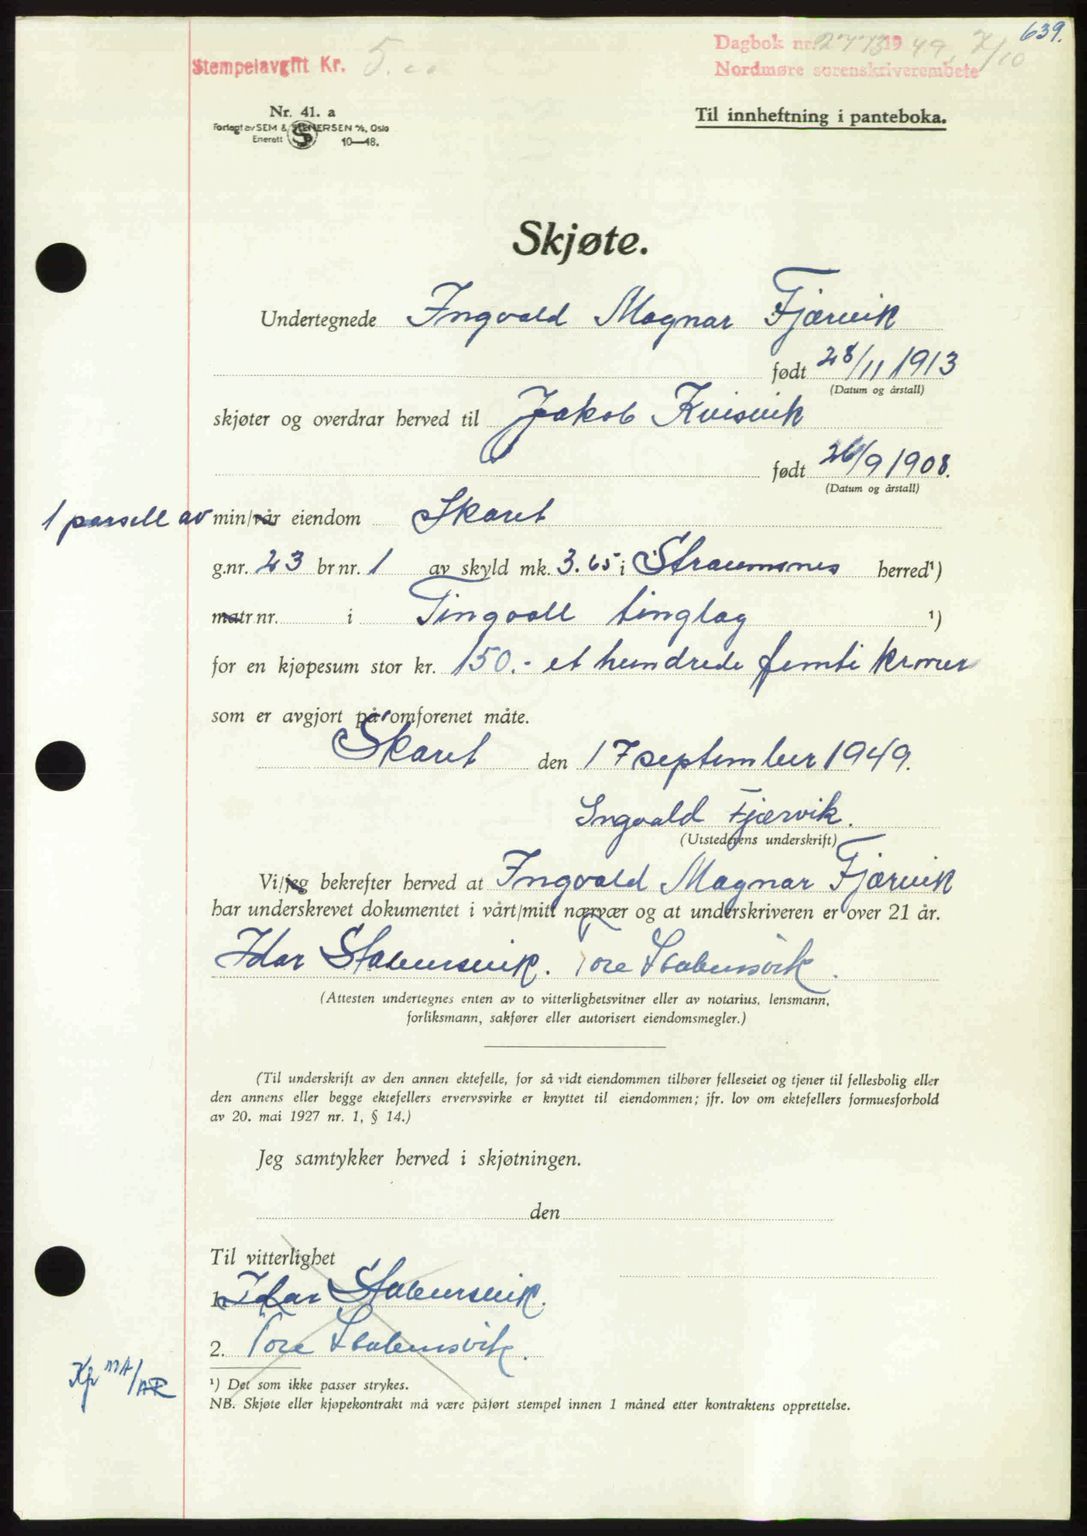 639.
Dagbok nr. 2773 1949, 7/10
Stempelavgift Kr. 5.00
Nordmøre sorenskriverembete
Nr. 41. a
Forlagt av SEM & STENERSEN A/S, Oslo
Enerett 10—48.
Til innheftning i panteboka.
Skjøte.
Undertegnede Ingvald Magnar Fjærvik
født 28/11 1913
(Datum og årstall)
skjøter og overdrar herved til Jakob Kvisvik
født 26/9 1908.
(Datum og årstall)
1 parsell av min/vår eiendom Skaret
g.nr. 23 br nr. 1 av skyld mk. 3.65 i Straumsnes herred¹)
matr nr. i Tingvoll tinglag ¹)
for en kjøpesum stor kr. 150.- et hundrede femti kroner
som er avgjort på omforenet måte.
Skaret den 17 september 1949.
Ingvald Fjærvik.
(Utstederens underskrift)
Vi/jeg bekrefter herved at Ingvald Magnar Fjærvik
har underskrevet dokumentet i vårt/mitt nærvær og at underskriveren er over 21 år.
Idar Stabursvik. Tore Stabursvik.
(Attesten undertegnes enten av to vitterlighetsvitner eller av notarius, lensmann,
forliksmann, sakfører eller autorisert eiendomsmegler.)
(Til underskrift av den annen ektefelle, for så vidt eiendommen tilhører felleseiet og tjener til fellesbolig eller
den annens eller begge ektefellers ervervsvirke er knyttet til eiendommen; jfr. lov om ektefellers formuesforhold
av 20. mai 1927 nr. 1, § 14.)
Jeg samtykker herved i skjøtningen.
den
Til vitterlighet
1. Idar Stabursvik.
2. Tore Stabursvik.
¹) Det som ikke passer strykes.
NB. Skjøte eller kjøpekontrakt må være påført stempel innen 1 måned etter kontraktens opprettelse.